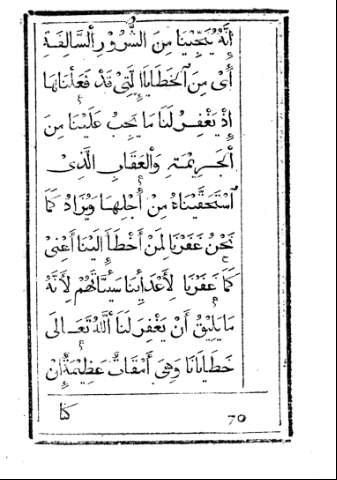 إِنَّهُ يُنَجِّيْنَا مِنَ الشُّرُوْرِ اْلسَّالِفَةِ
أَىْ مِنَ اْلخَطَايَا اْلَّتِىْ قَدْ فَعَلْنَاهَا
إِذْ يَغْفِرُ لَنَا مَا يَجِبُ عَلَيْنَا مِنَ
اْلجَرِيْمَةِ وَاْلعِقَابِ الَّذِىْ
اسْتَحَقَّيْنَاهُ مِنْ أَجْلِهَا وَيُزَادُ كَمَا
نَحْنُ غَفَرْنَا لِمَنْ أَخْطَأَ إِلَيْنَا أَعْنِىْ
كَمَا غَفَرْنَا لِأَعْدَائِنَا سَيِّئَاتَهُمْ لِأَنَّهُ
مَا يَلِيْقُ أَنْ يَغْفِرَ لَنَا اْللّٰهُ تَعَالَى
خَطَايَانَا وَهِىَ عَظِيْمَةٌ إِنْ
كنا
70